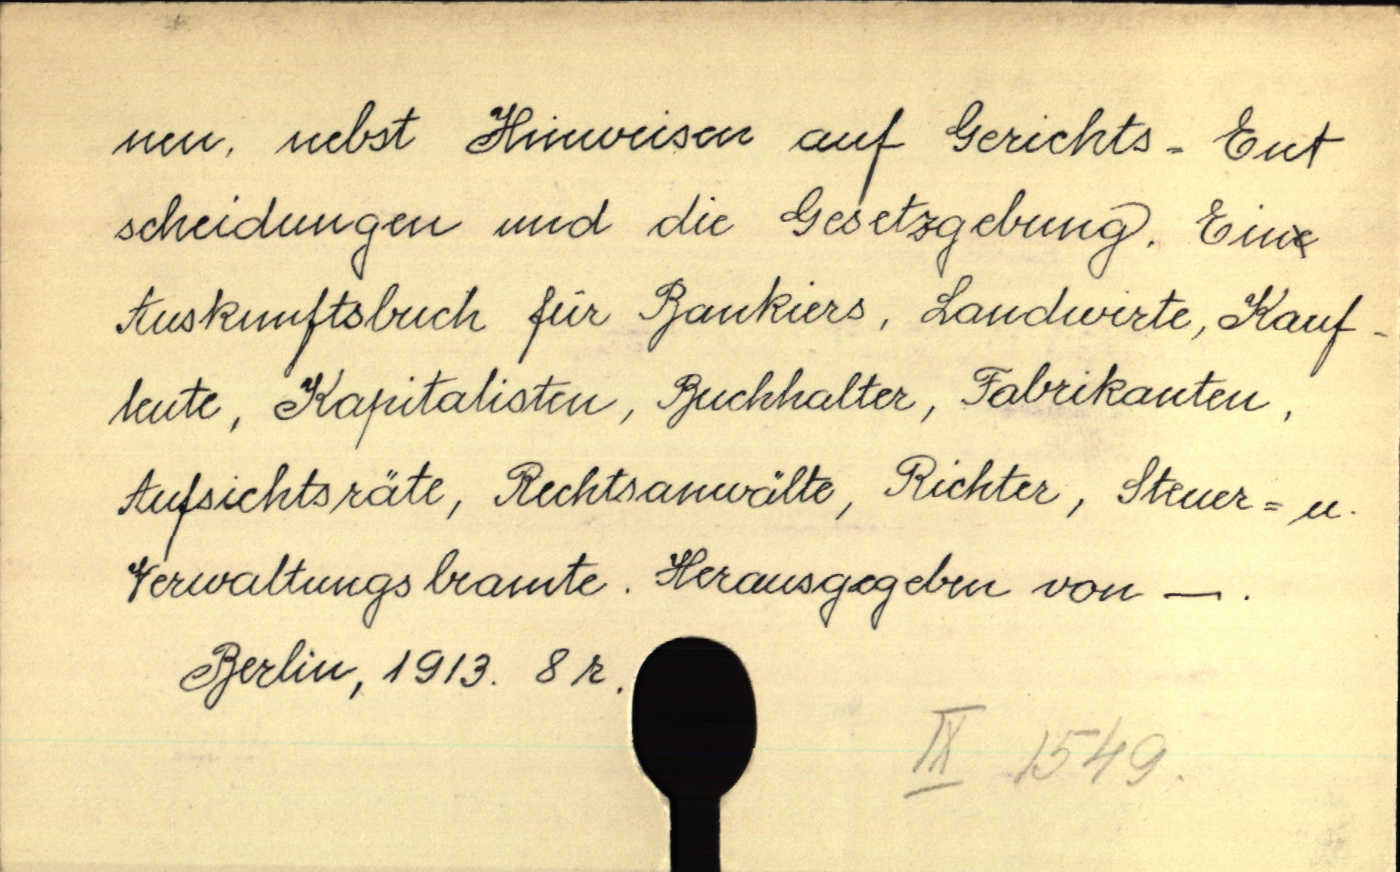 nen, nebst Hinweisen auf Gerichts= Ent
scheidungen und die Gesetzgebung. Ein
Auskunftsbuch für Bankiers, Landwirte, Kauf-
leute, Kapitalisten, Buchhalter, Fabrikanten,
Aufsichtsräte, Rechtsanwälte, Richter, Steuer= u.
Verwaltungsbeamte. Herausgegeben von —.
Berlin, 1913. 8 r.
IX 1549.